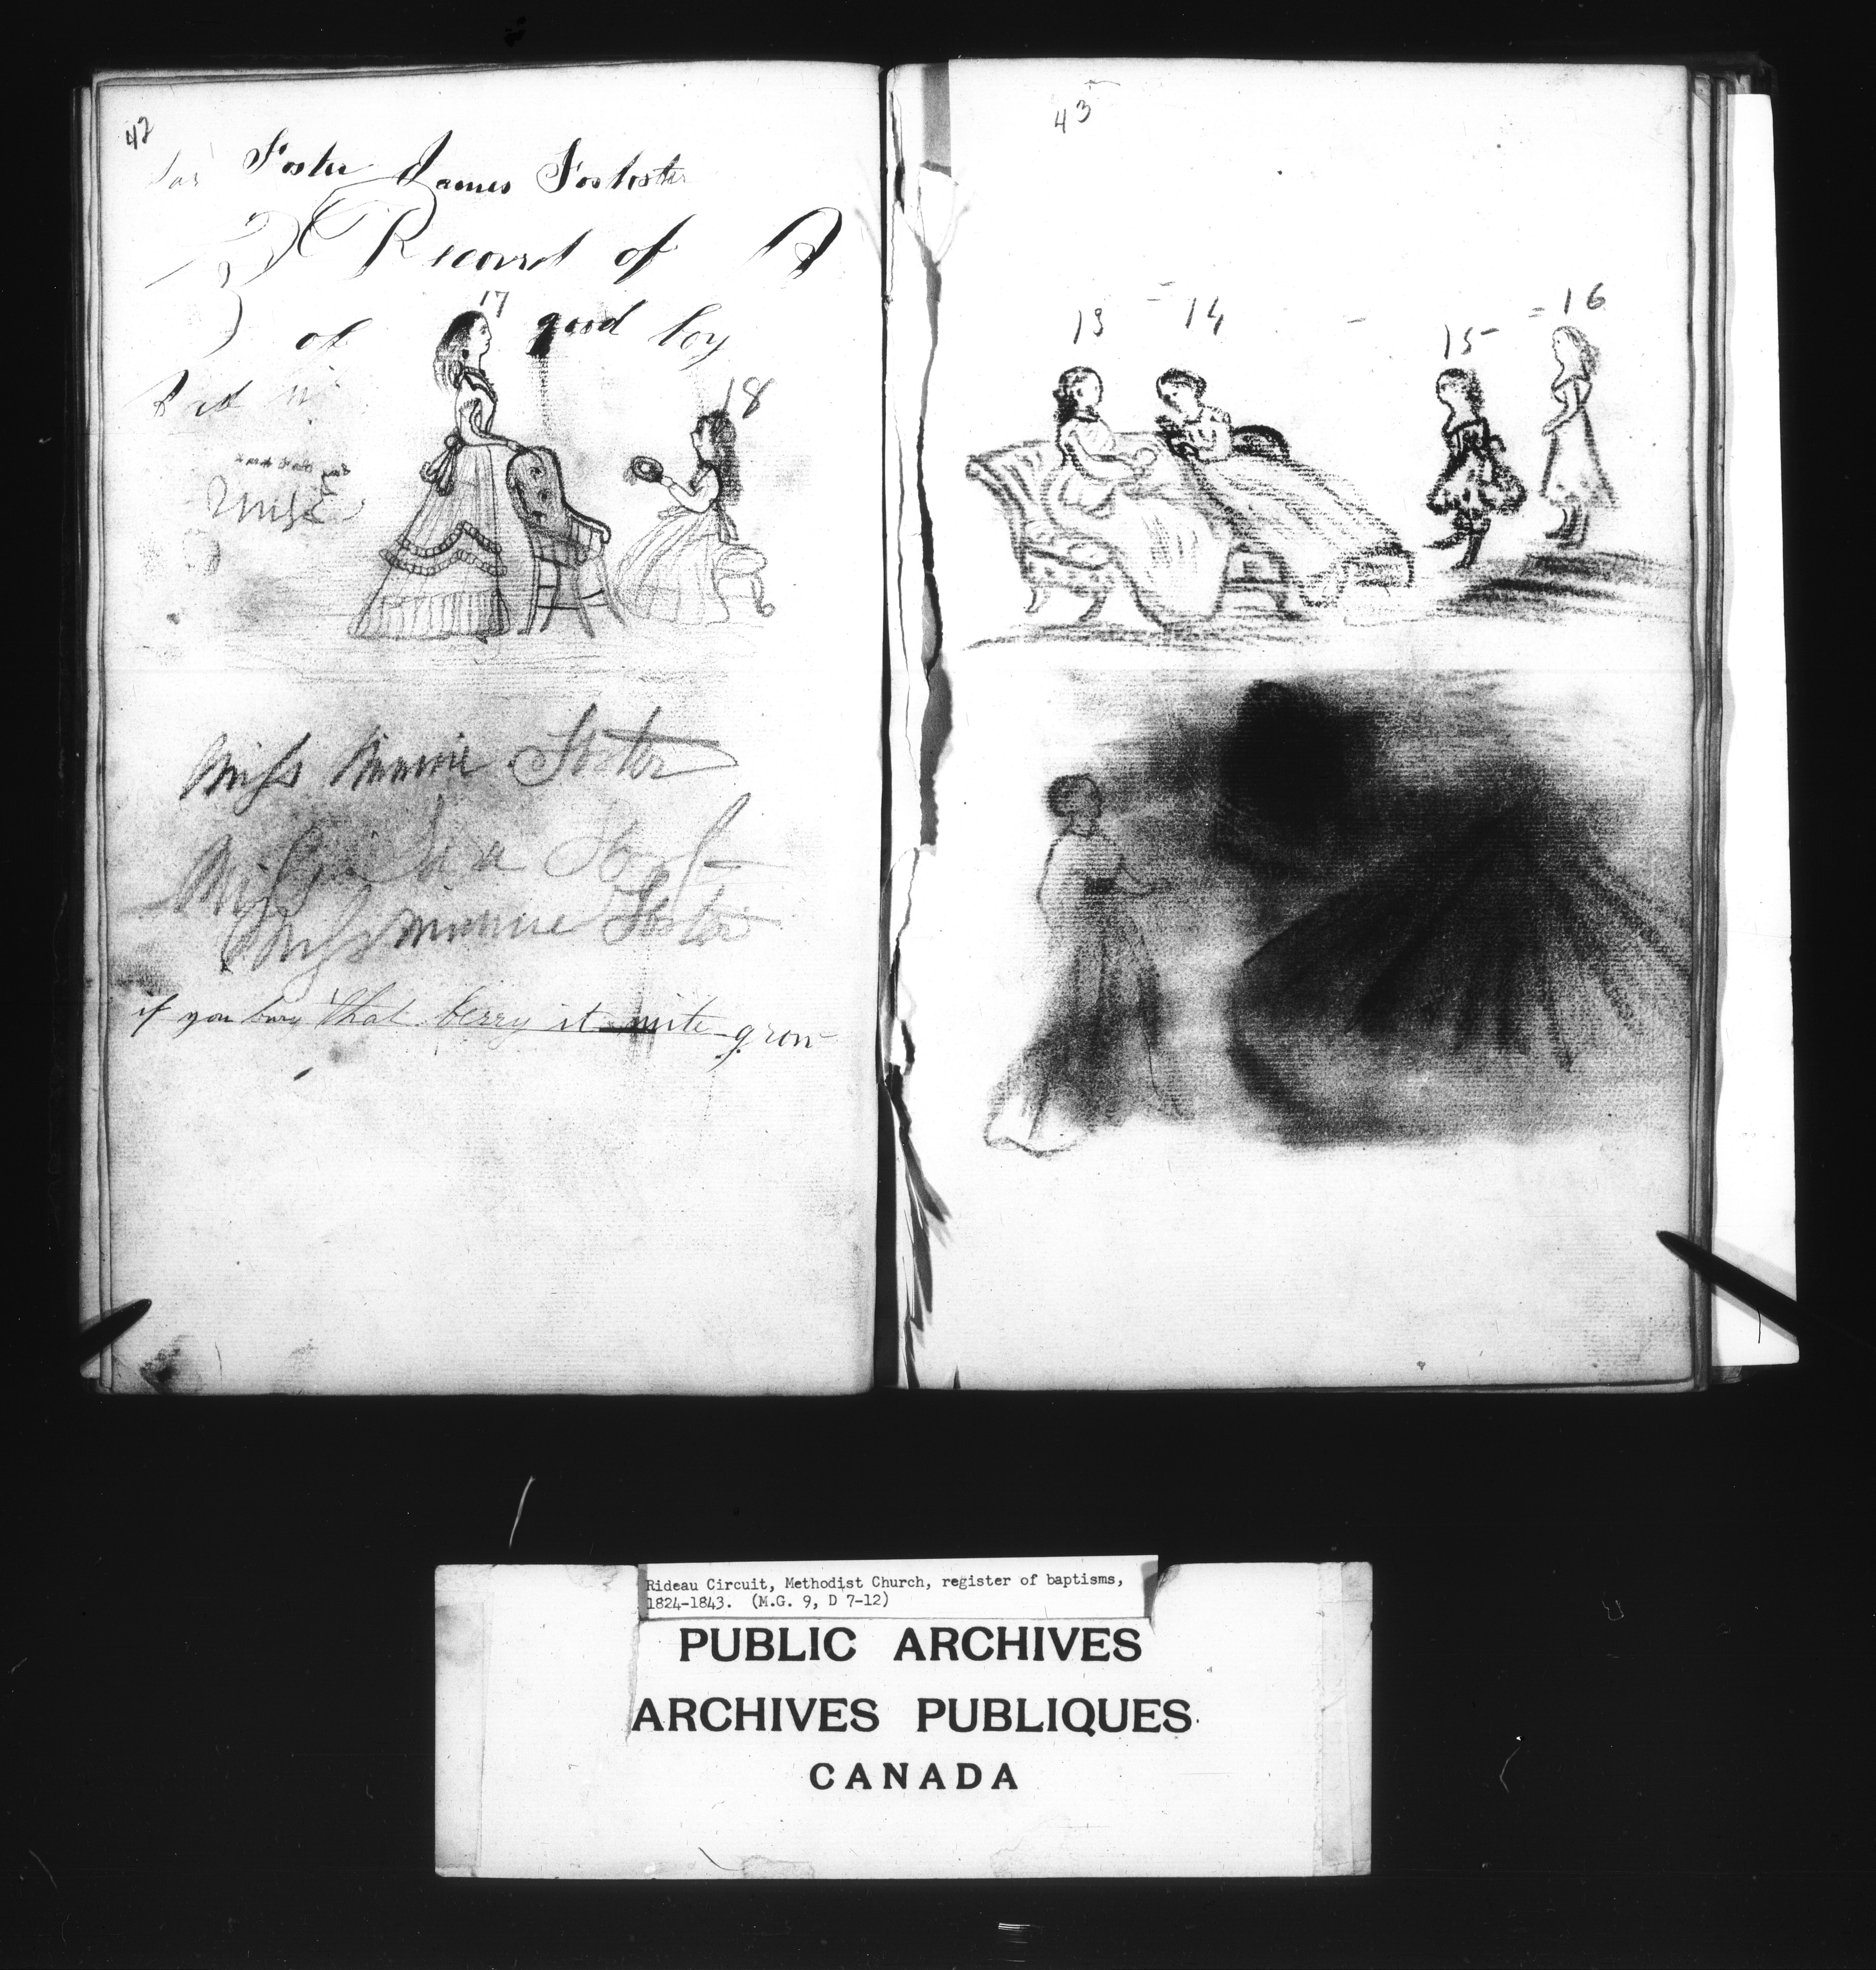 42
Jas Foster James Fosloster
Record of A
of good boy
17
Bad
18
Miss
Miss Minnie Foster
Miss
Miss Minnie Foster
if you bury that berry it mite grow
43
13 = 14 - 15 = 16
Rideau Circuit, Methodist Church, register of baptisms,
1824-1843. (M.G. 9, D 7-12)
PUBLIC ARCHIVES
ARCHIVES PUBLIQUES
CANADA